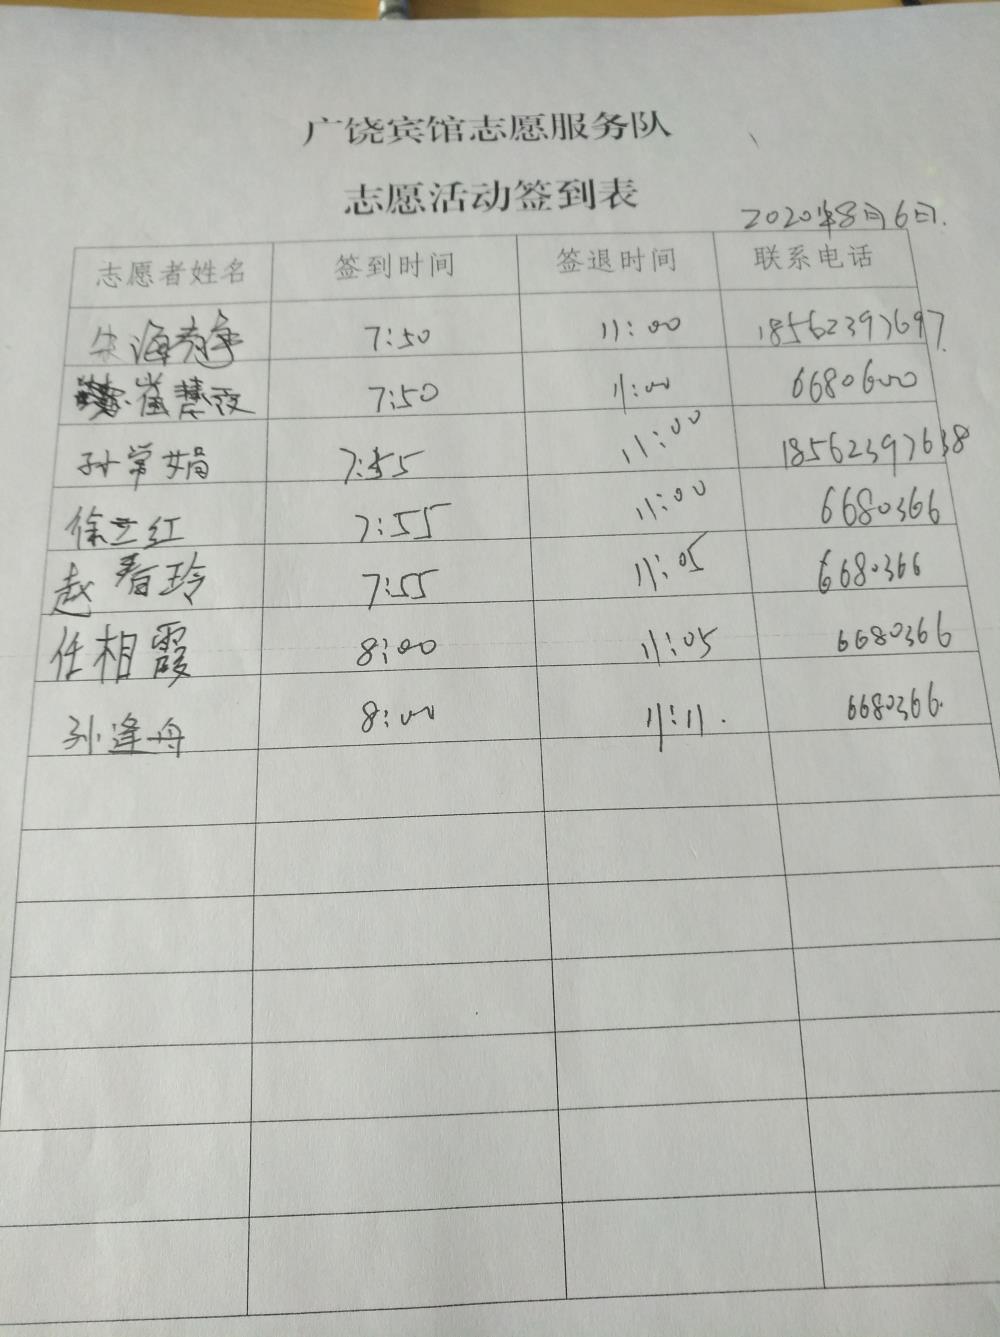 广饶宾馆志愿服务队
志愿活动签到表
2020年8月6日.
志愿者姓名 签到时间 签退时间 联系电话
海静 7:50 11:00 18562397697
崔慧 7:50 11:00 6680600
孙常娟 7:55 11:00 18562397638
徐兰红 7:55 11:00 6680366
赵春玲 7:55 11:05 6680366
任相霞 8:00 11:05 6680366
孙逢舟 8:00 11:11. 6680366.